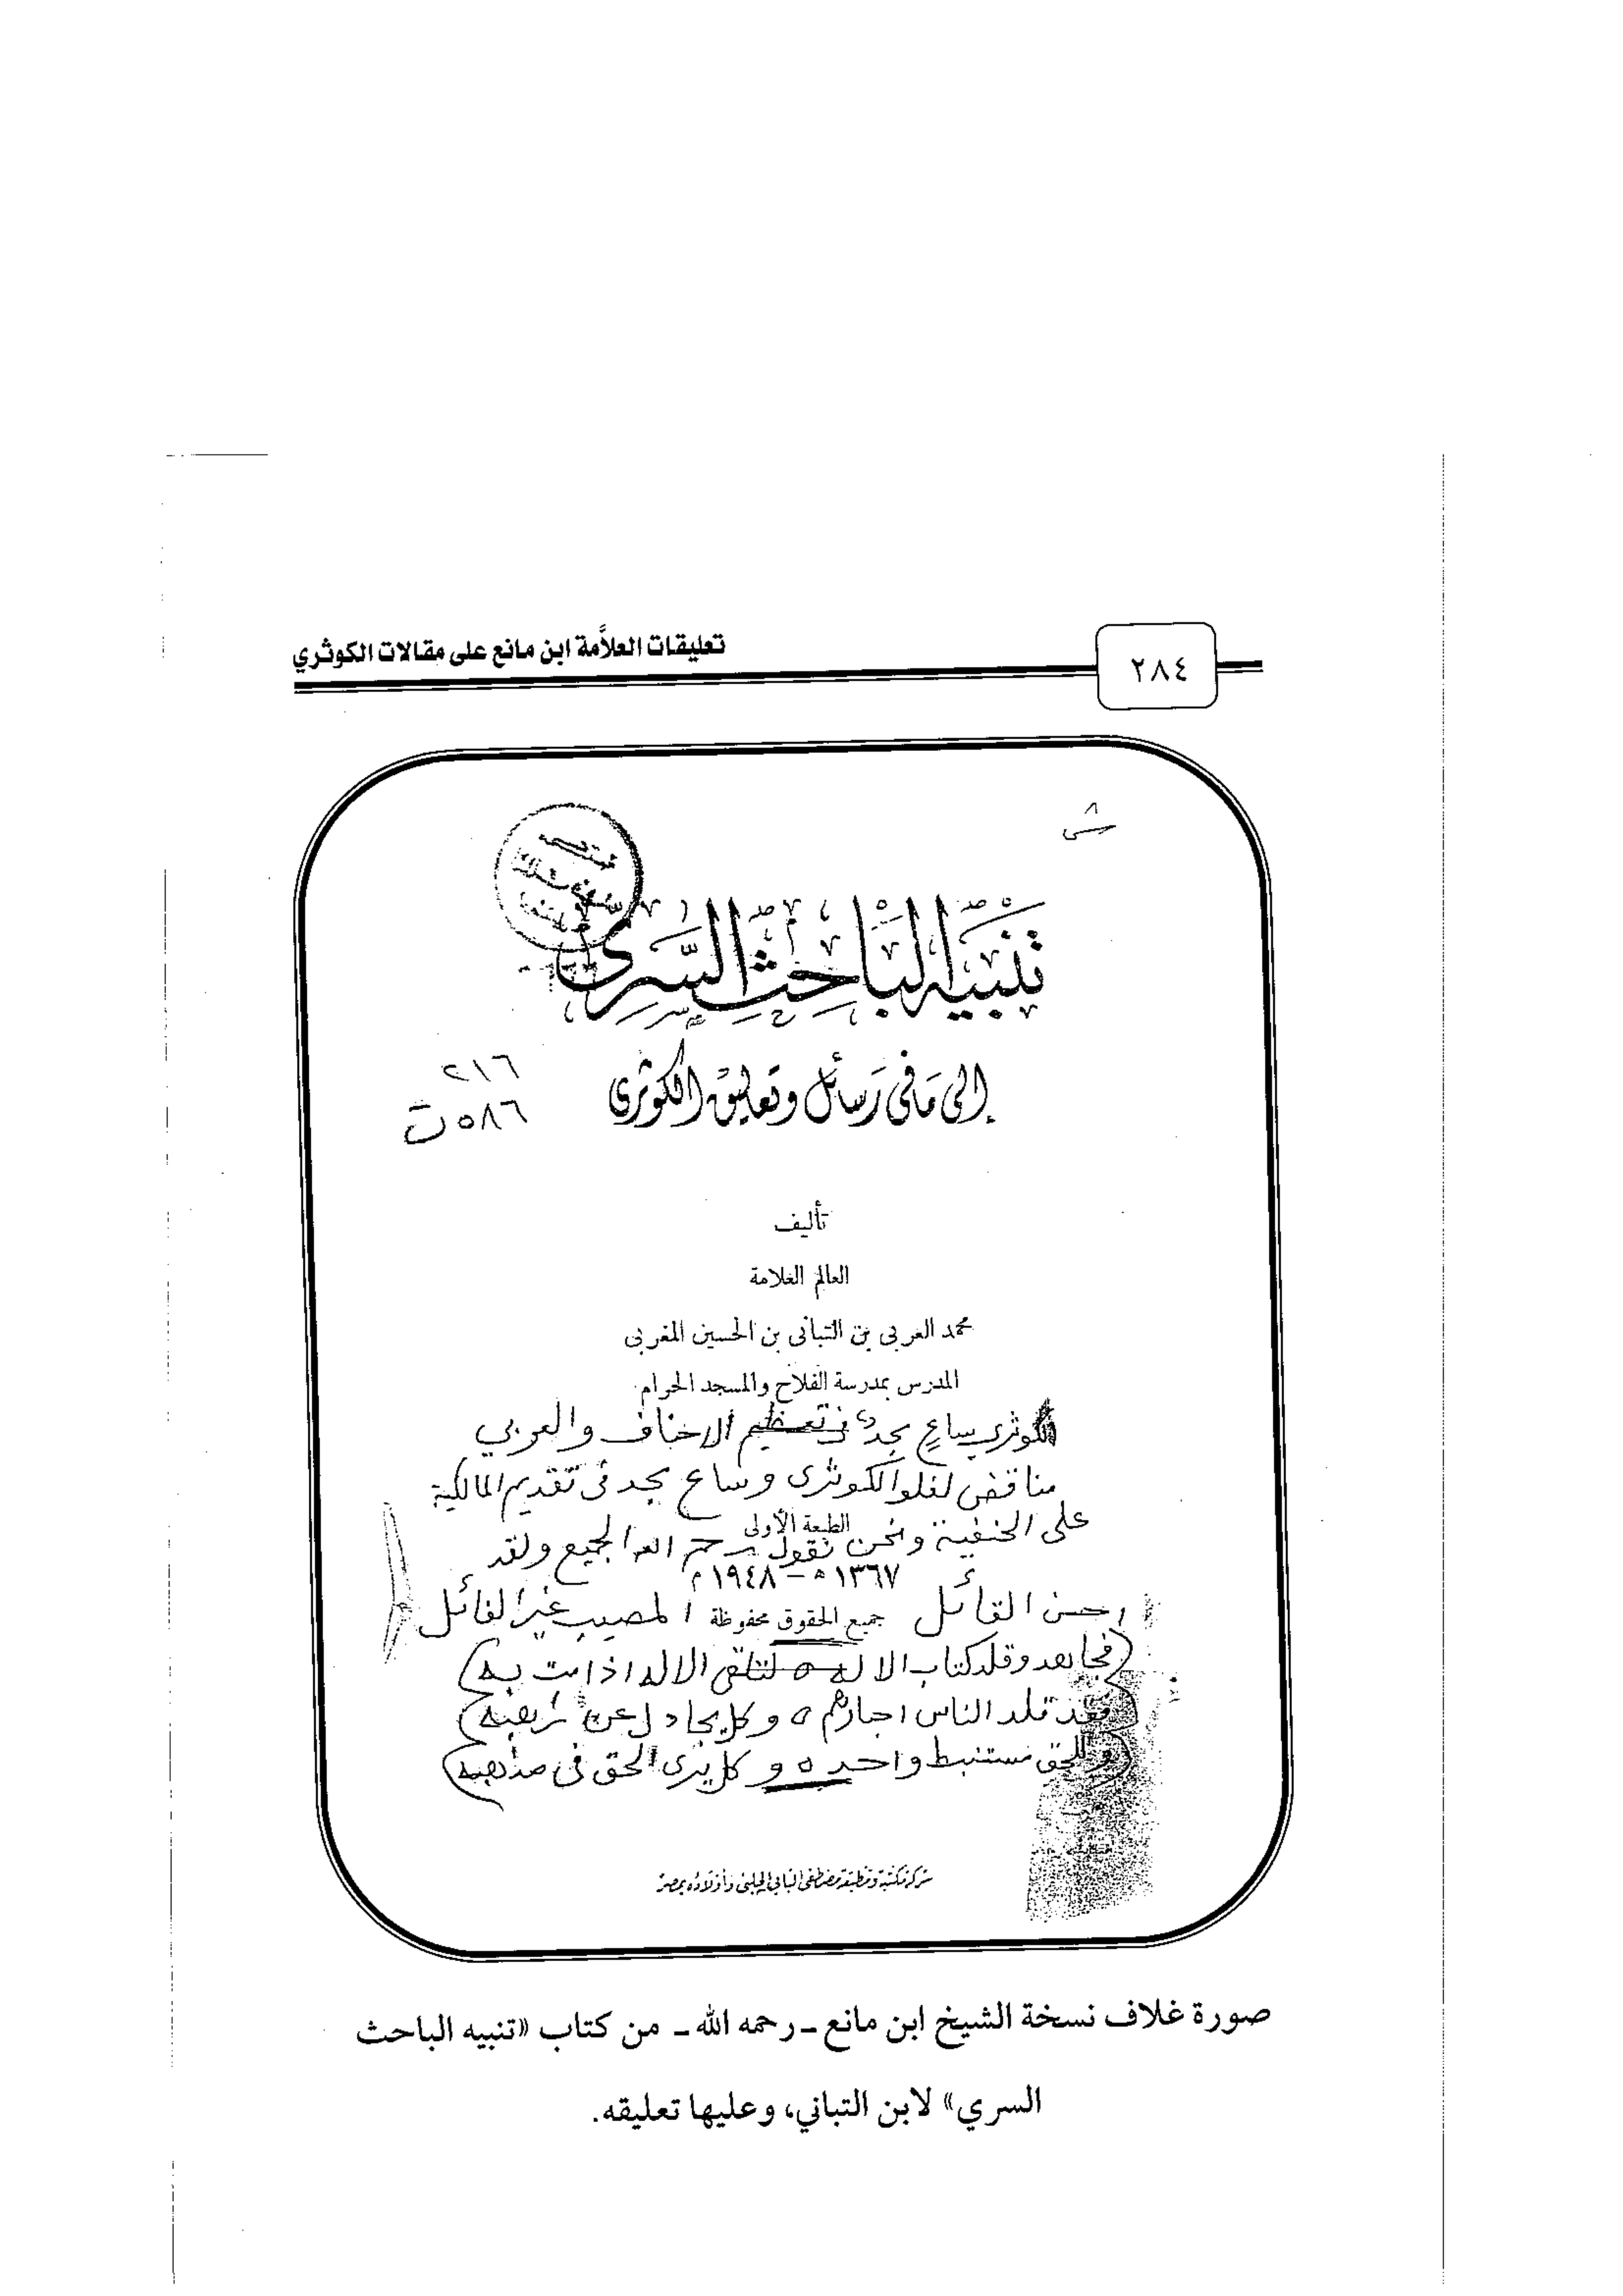 تعليقات العلاَّمة ابن مانع على مقالات الكوثري
٢٨٤
تنبيه الباحث السري
إلى ما في رسائل وتعاليق الكوثري
٢١٦
٥٨٦ ت
تأليف
العالم العلامة
محمد العربى بن التبانى بن الحسين المغربى
المدرس بمدرسة الفلاح والمسجد الحرام
الكوثري ساعٍ بجد في تعظيم الاحناف والعربي
مناقض لغلو الكوثرى وساع بجد فى تقديم المالكية
على الحنفية ونحن نقول رحم الله الجميع ولقد
الطبعة الأولى
١٣٦٧ ه – ١٩٤٨ م
احسن القائل المصيب غير القائل
جميع الحقوق محفوظة
وقلد كتاب الاله ه لتلقى الاله اذا مت به
فقد قلد الناس احبارهم ه وكل يجادل عن
وللحق مستنبط واحد ه وكل يرى الحق فى مذهبه
شركة مكتبة ومطبعة مصطفى البابى الحلبى وأولاده بمصر
صورة غلاف نسخة الشيخ ابن مانع ـ رحمه الله ـ من كتاب «تنبيه الباحث
السري» لابن التباني، وعليها تعليقه.